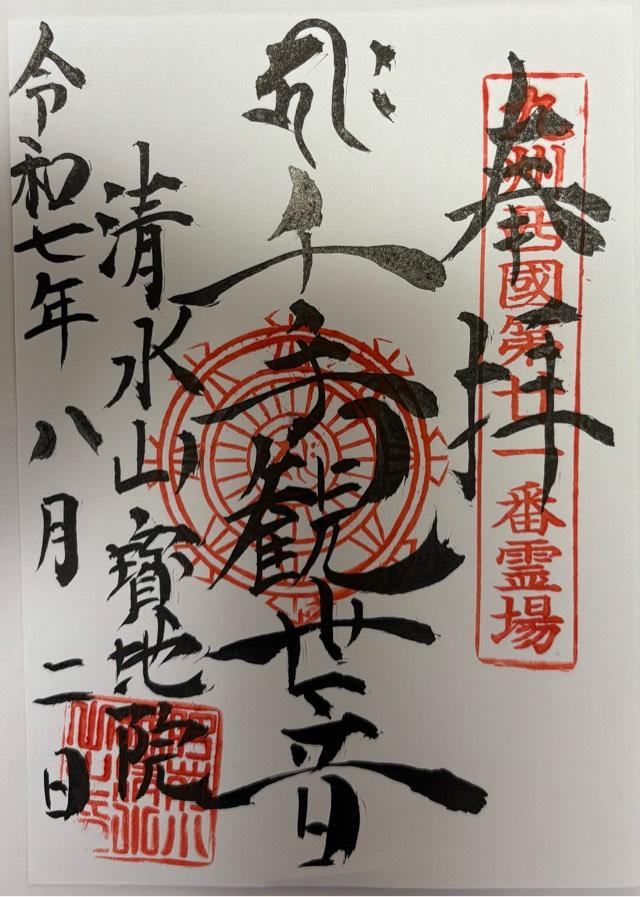 奉拝
九州西國第廿一番霊場
千手観世音
清水山寳地院
令和七年八月二日